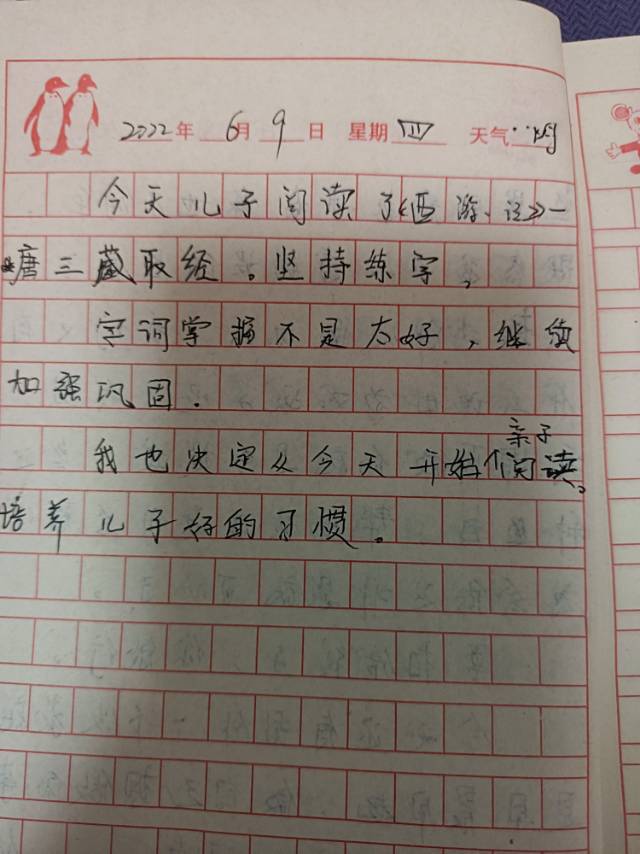 2022年 6月 9日 星期四 天气:晴
今天儿子阅读了《西游记》一
唐三藏取经。坚持练字,
字词掌握不是太好,继续
加强巩固.
我也决定从今天开始亲子阅读。
培养儿子好的习惯。